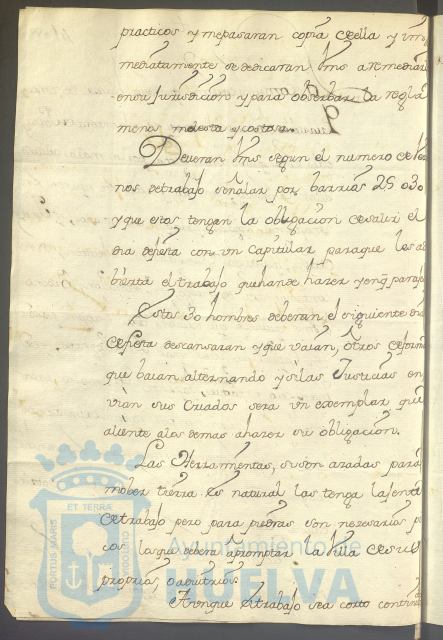 practicos y mepasaran copia deella y im
mediatamente se dedicaran Vms a remediar
ensu Jurisdicion y para observar la regla
menos molesta y costosa.
Deveran Vms segun el numero deveci
nos detrabajo señalar por barrias 25 o 30
y que estos tengan la obligacion desalir el
dia defiesta con vn Capitular paraque les ad
bierta el trabajo quehande hazer y
Estos 30 hombres deberan el siguiente dia
defiesta descansaran y que vaian, otros deforma
que baian alternando y silas Justicias en
vian sus Criados sera vn exemplar que
aliente alos demas ahazer su obligacion.
Las Herramientas, si son azadas para
mober tierra Es natural las tenga la
detrabajo pero para piedras son nezesarios pi
cos los que deben aprontar la Villa desus
propios o arvitrios
Aunque el trabajo sea corto
ET TERRA
PORTUS MARIS
CUSTODIA
Ayuntamiento de
HUELVA